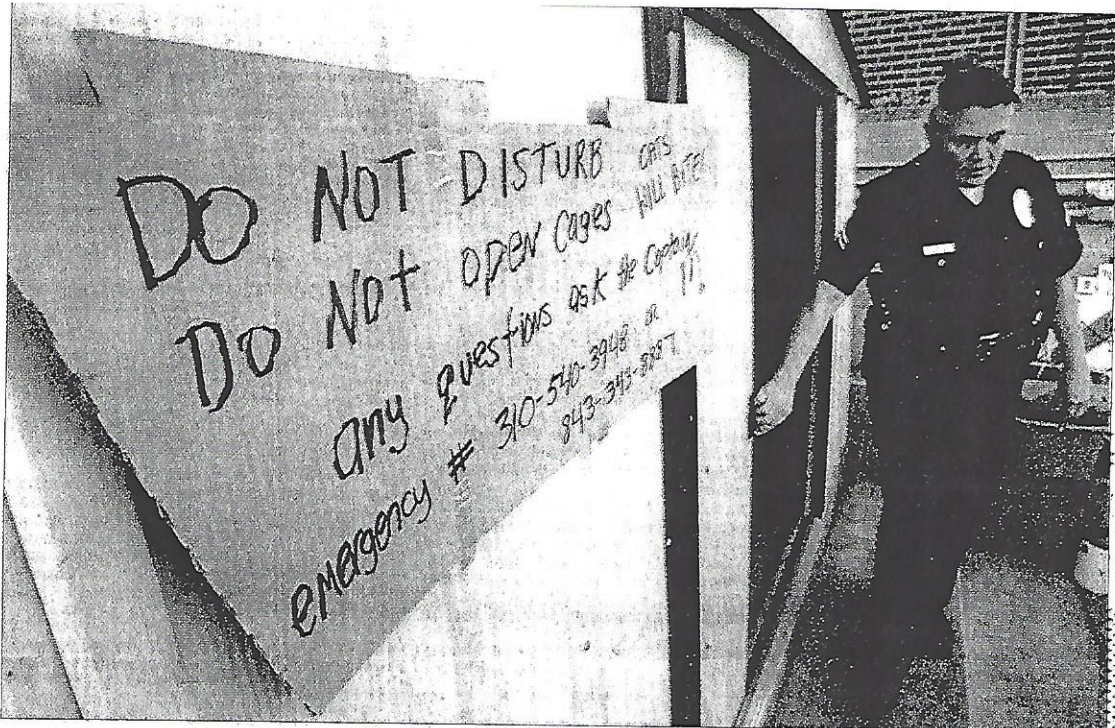 DO NOT DISTURB CATS
DO NOt OPEN Cages WILL BITE!
any questions ask the Captain
emergency # 310-540-3948 or
843-343-8887